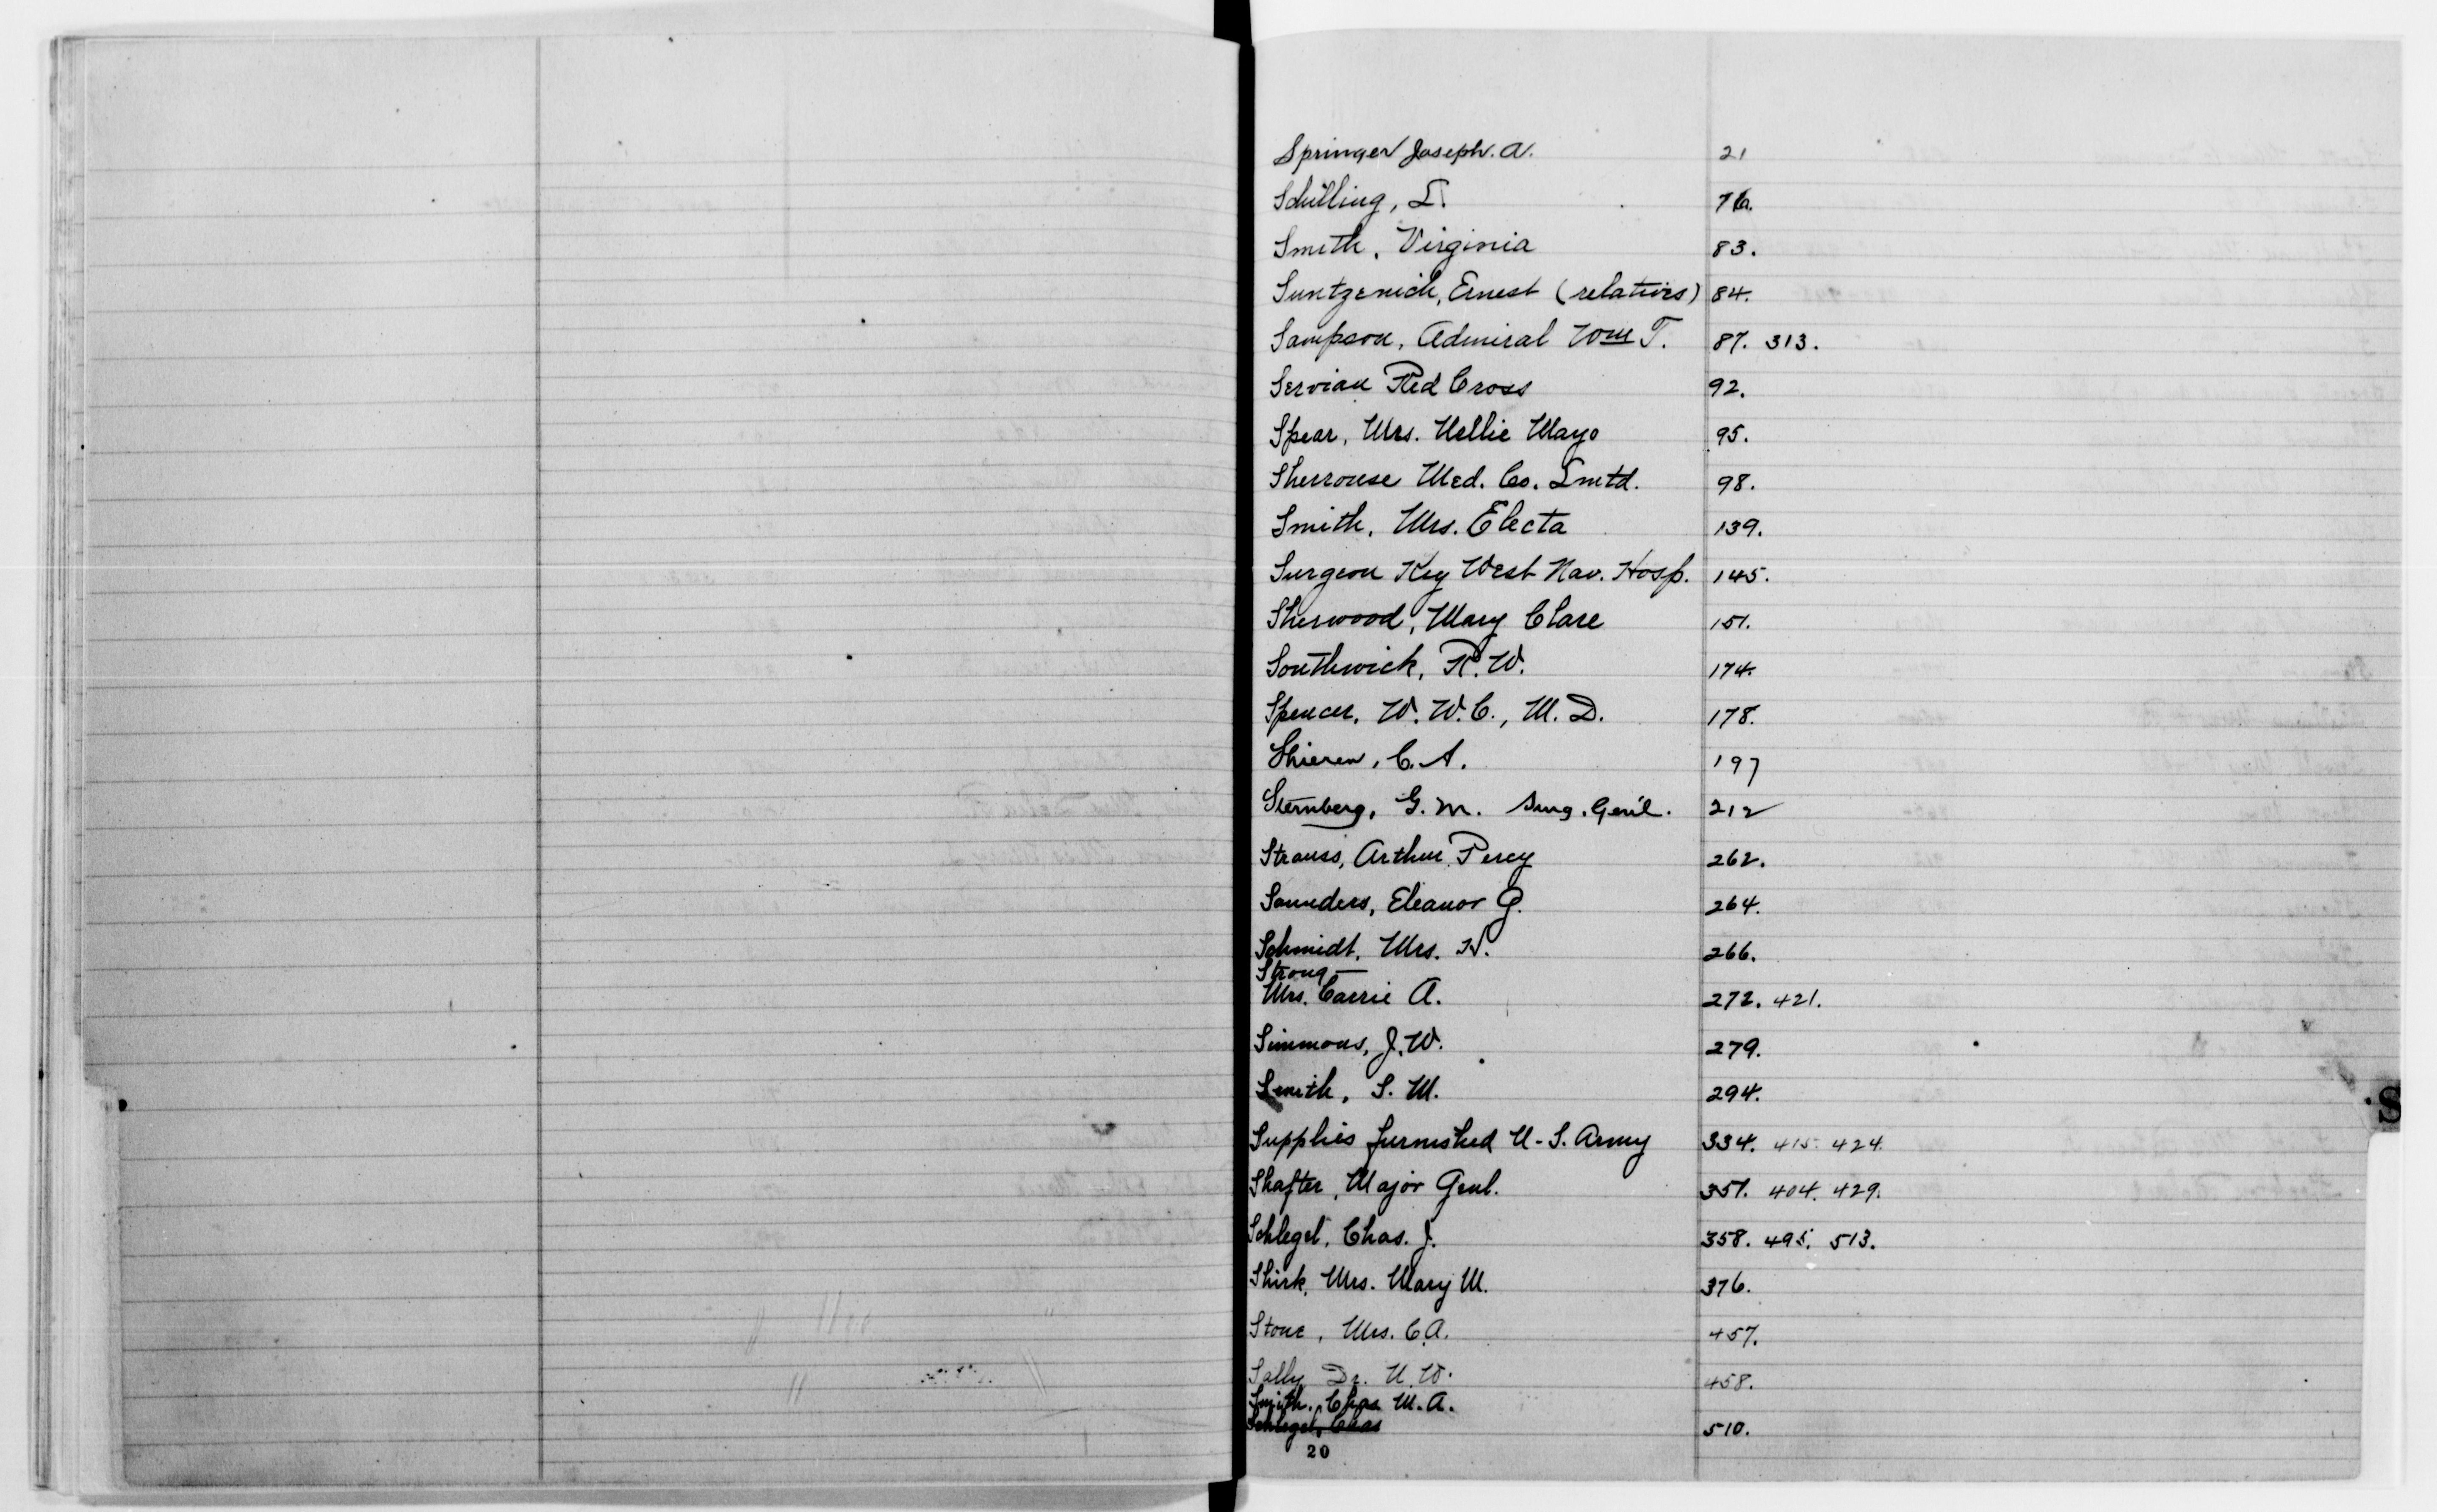 Springer Joseph. A. 21
Schilling, L. 76.
Smith, Virginia 83.
Suntzenich, Ernest (relatives) 84.
Sampson, Admiral Wm T. 87. 313.
Servian Red Cross 92.
Spear, Mrs. Nellie Mayo 95.
Sherrouse Med. Co. Lmtd. 98.
Smith, Mrs. Electa 139.
Surgeon Key West Nav. Hosp. 145.
Sherwood, Mary Clare 151.
Southwick, R. W. 174.
Spencer, W. W. C., M. D. 178.
Shieren, C. A. 197
Sternberg, G. M. Surg. Gen'l. 212
Strauss, Arthur Percy 262.
Saunders, Eleanor G. 264.
Schmidt, Mrs. H. 266.
Strong
Mrs. Carrie A. 272. 421.
Simmons, J. W. 279.
Smith, S. M. 294.
Supplies furnished U-S. Army 334. 415. 424.
Shafter, Major Genl. 351. 404. 429.
Schlegel, Chas. J. 358. 495. 513.
Shirk, Mrs. Mary M. 376.
Stone, Mrs. C. A. 457.
Sally Dr. U. W. 458.
Smith, Chas. M. A.
Schlegel, Chas 510.
20
S